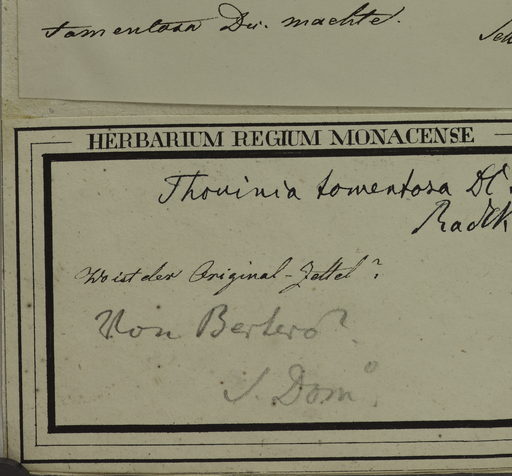 tomentosa DC. machte.
HERBARIUM REGIUM MONACENSE
Thouinia tomentosa DC.
Radlk
Wo ist der Original-Zettel?
Von Bertero?
S. Domo.